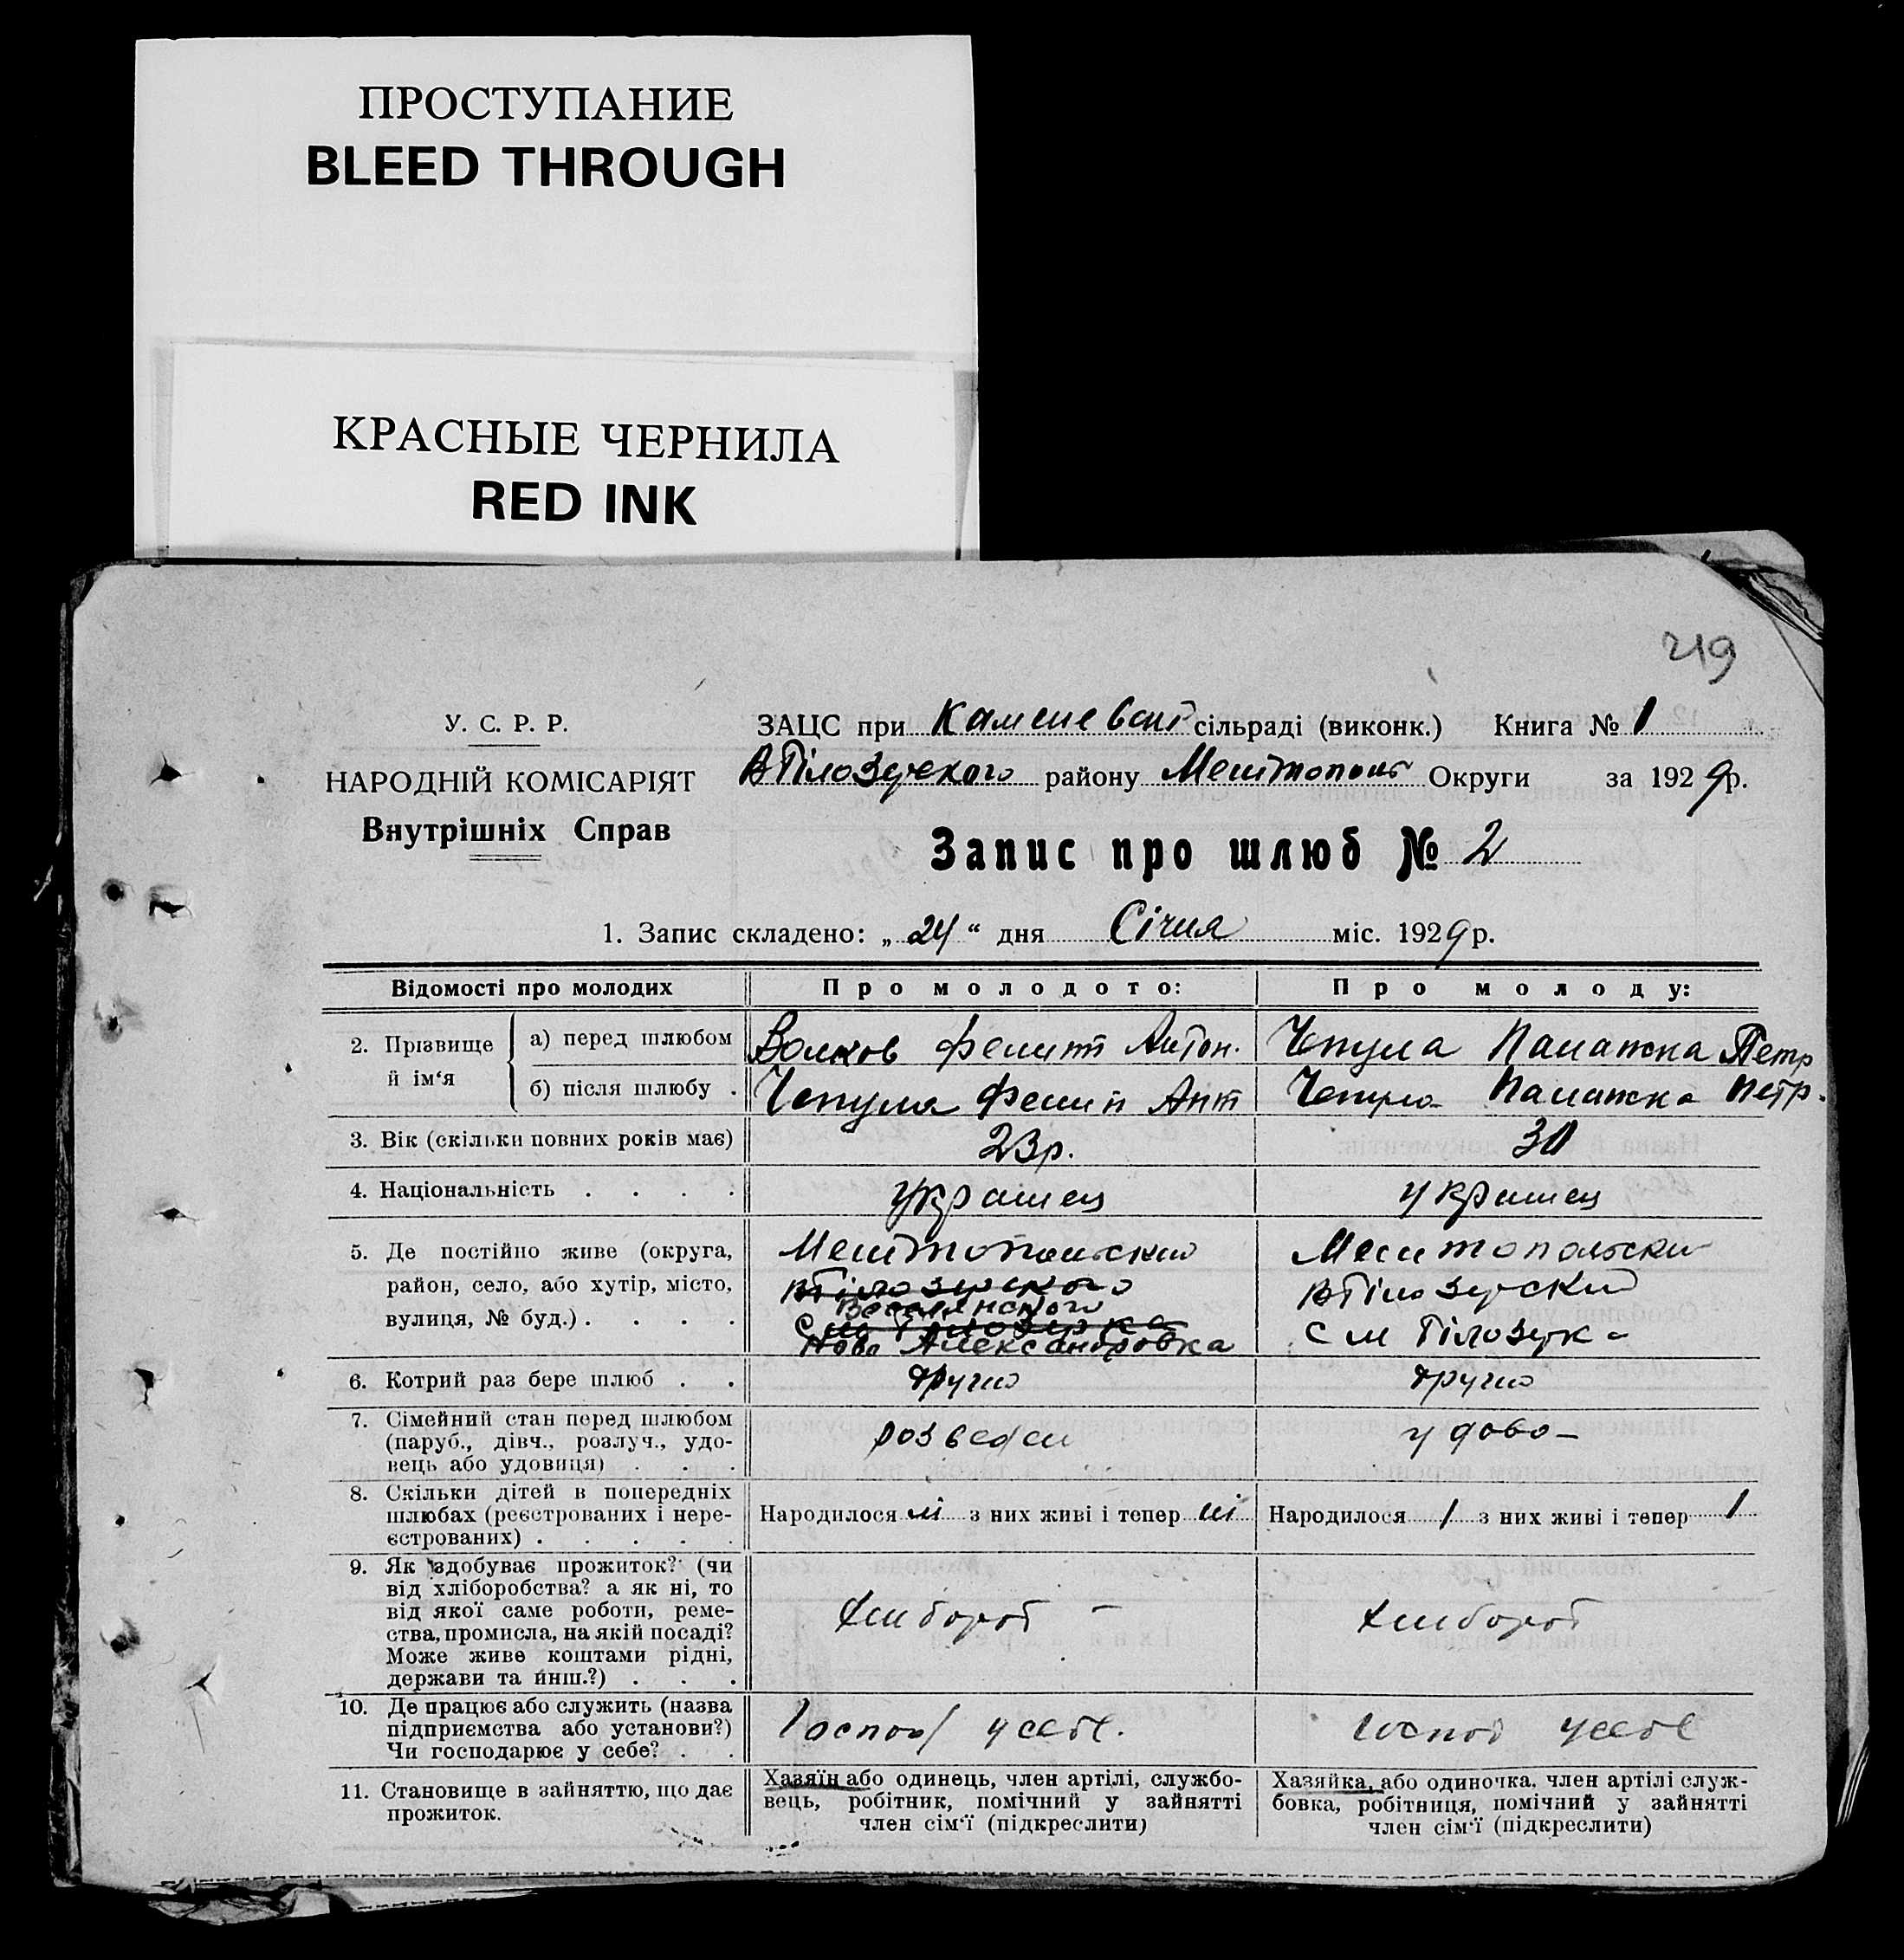 ПРОСТУПАНИЕ
BLEED THROUGH
КРАСНЫЕ ЧЕРНИЛА
RED INK
219
У. С. Р. Р.
НАРОДНІЙ КОМІСАРІЯТ
Внутрішніх Справ
ЗАЦС при сільраді (виконк.) Книга № 1
району Округи за 1929р.
Запис про шлюб № 2
1. Запис складено: „ 24 “ дня Січня міс. 1929 р.
Відомості про молодих
Про молодого:
Про молоду:
2. Прізвище й ім‘я
а) перед шлюбом
Волков Антон.
Чепула Петр
б) після шлюбу .
Чепула Ант
Чепула Петр.
3. Вік (скільки повних років має)
23р.
30
4. Національність . . . .
українец
українец
5. Де постійно живе (округа,
район, село, або хутір, місто,
вулиця, № буд.) . . . .
Веселянского
Ново Александровка
6. Котрий раз бере шлюб . .
7. Сімейний стан перед шлюбом
(паруб., дівч., розлуч., удо-
вець або удовиця) . . .
розведен
удова
8. Скільки дітей в попередніх
шлюбах (реєстрованих і нере-
єстрованих) . . . . .
Народилося ні з них живі і тепер ні
Народилося 1 з них живі і тепер 1
9. Як здобуває прожиток? (чи
від хліборобства? а як ні, то
від якої саме роботи, реме-
ства, промисла, на якій посаді?
Може живе коштами рідні,
держави та инш.?) . . .
хлибороб –
хлибороб
10. Де працює або служить (назва
підприємства або установи?)
Чи господарює у себе? . .
Господ у себе.
Господ у себе
11. Становище в зайняттю, що дає
прожиток.
Хазяїн або одинець, член артілі, службо-
вець, робітник, помічний у зайнятті
член сім‘ї (підкреслити)
Хазяйка, або одиночка, член артілі служ-
бовка, робітниця, помічний у зайнятті
член сім‘ї (підкреслити)